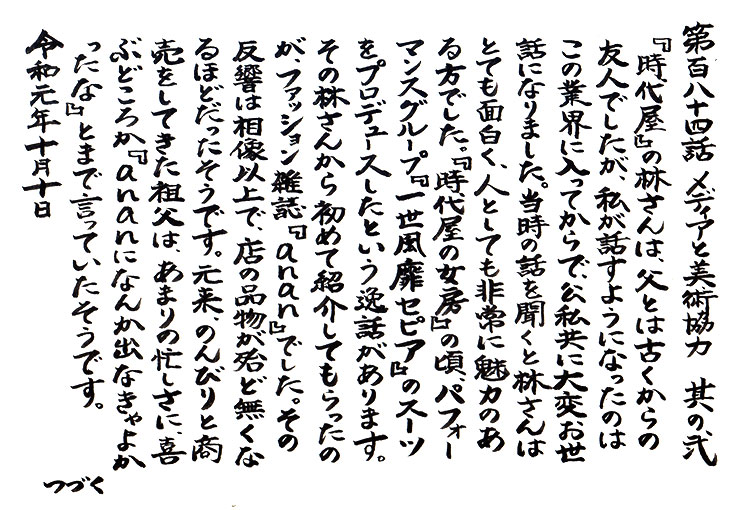 第百八十四話　メディアと美術協力　其の、弐
『時代屋』の林さんは、父とは古くからの
友人でしたが、私が話すようになったのは
この業界に入ってからで、公私共に大変お世
話になりました。当時の話を聞くと林さんは
とても面白く、人としても非常に魅力のあ
る方でした。『時代屋の女房』の頃、パフォー
マンスグループ『一世風靡セピア』のスーツ
をプロデュースしたという逸話があります。
その林さんから初めて紹介してもらったの
が、ファッション雑誌『anan』でした。その
反響は相像以上で、店の品物が殆ど無くな
るほどだったそうです。元来、のんびりと商
売をしてきた祖父は、あまりの忙しさに、喜
ぶどころか『ananになんか出なきゃよか
ったな』とまで言っていたそうです。
令和元年十月十日
つづく